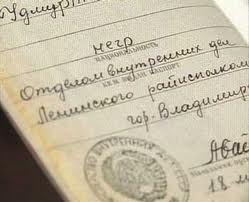 Удмурт
негр
национальность
Отделом внутренних дел
кем выдан паспорт
Ленинского райисполком
гор. Владимир
Абас
18 м